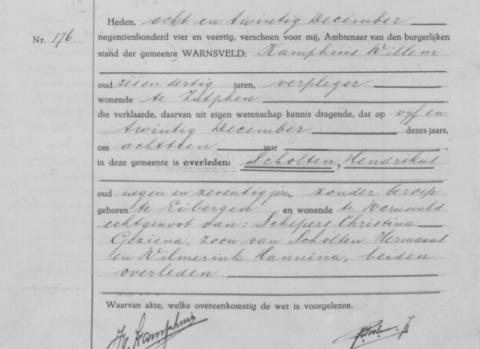 Heden, acht en twintig December
Nr. 176.
negentienhonderd vier en veertig, verscheen voor mij, Ambtenaar van den burgerlijken
stand der gemeente WARNSVELD: Kamphuis Willem
oud zes en dertig jaren, verpleger
wonende te Zutphen
die verklaarde, daarvan uit eigen wetenschap kennis dragende, dat op vijf en
twintig December dezes jaars,
om achttien uur
in deze gemeente is overleden: Scholten, Hendrikus
oud negen en zeventig jaren, zonder beroep
geboren te Eibergen en wonende te Warnsveld
echtgenoot van: Schepers Christina
Geziena, zoon van Scholten Hermanus
en Wilmerink Hannina, beiden
overleden
Waarvan akte, welke overeenkomstig de wet is voorgelezen.
W. Kamphuis